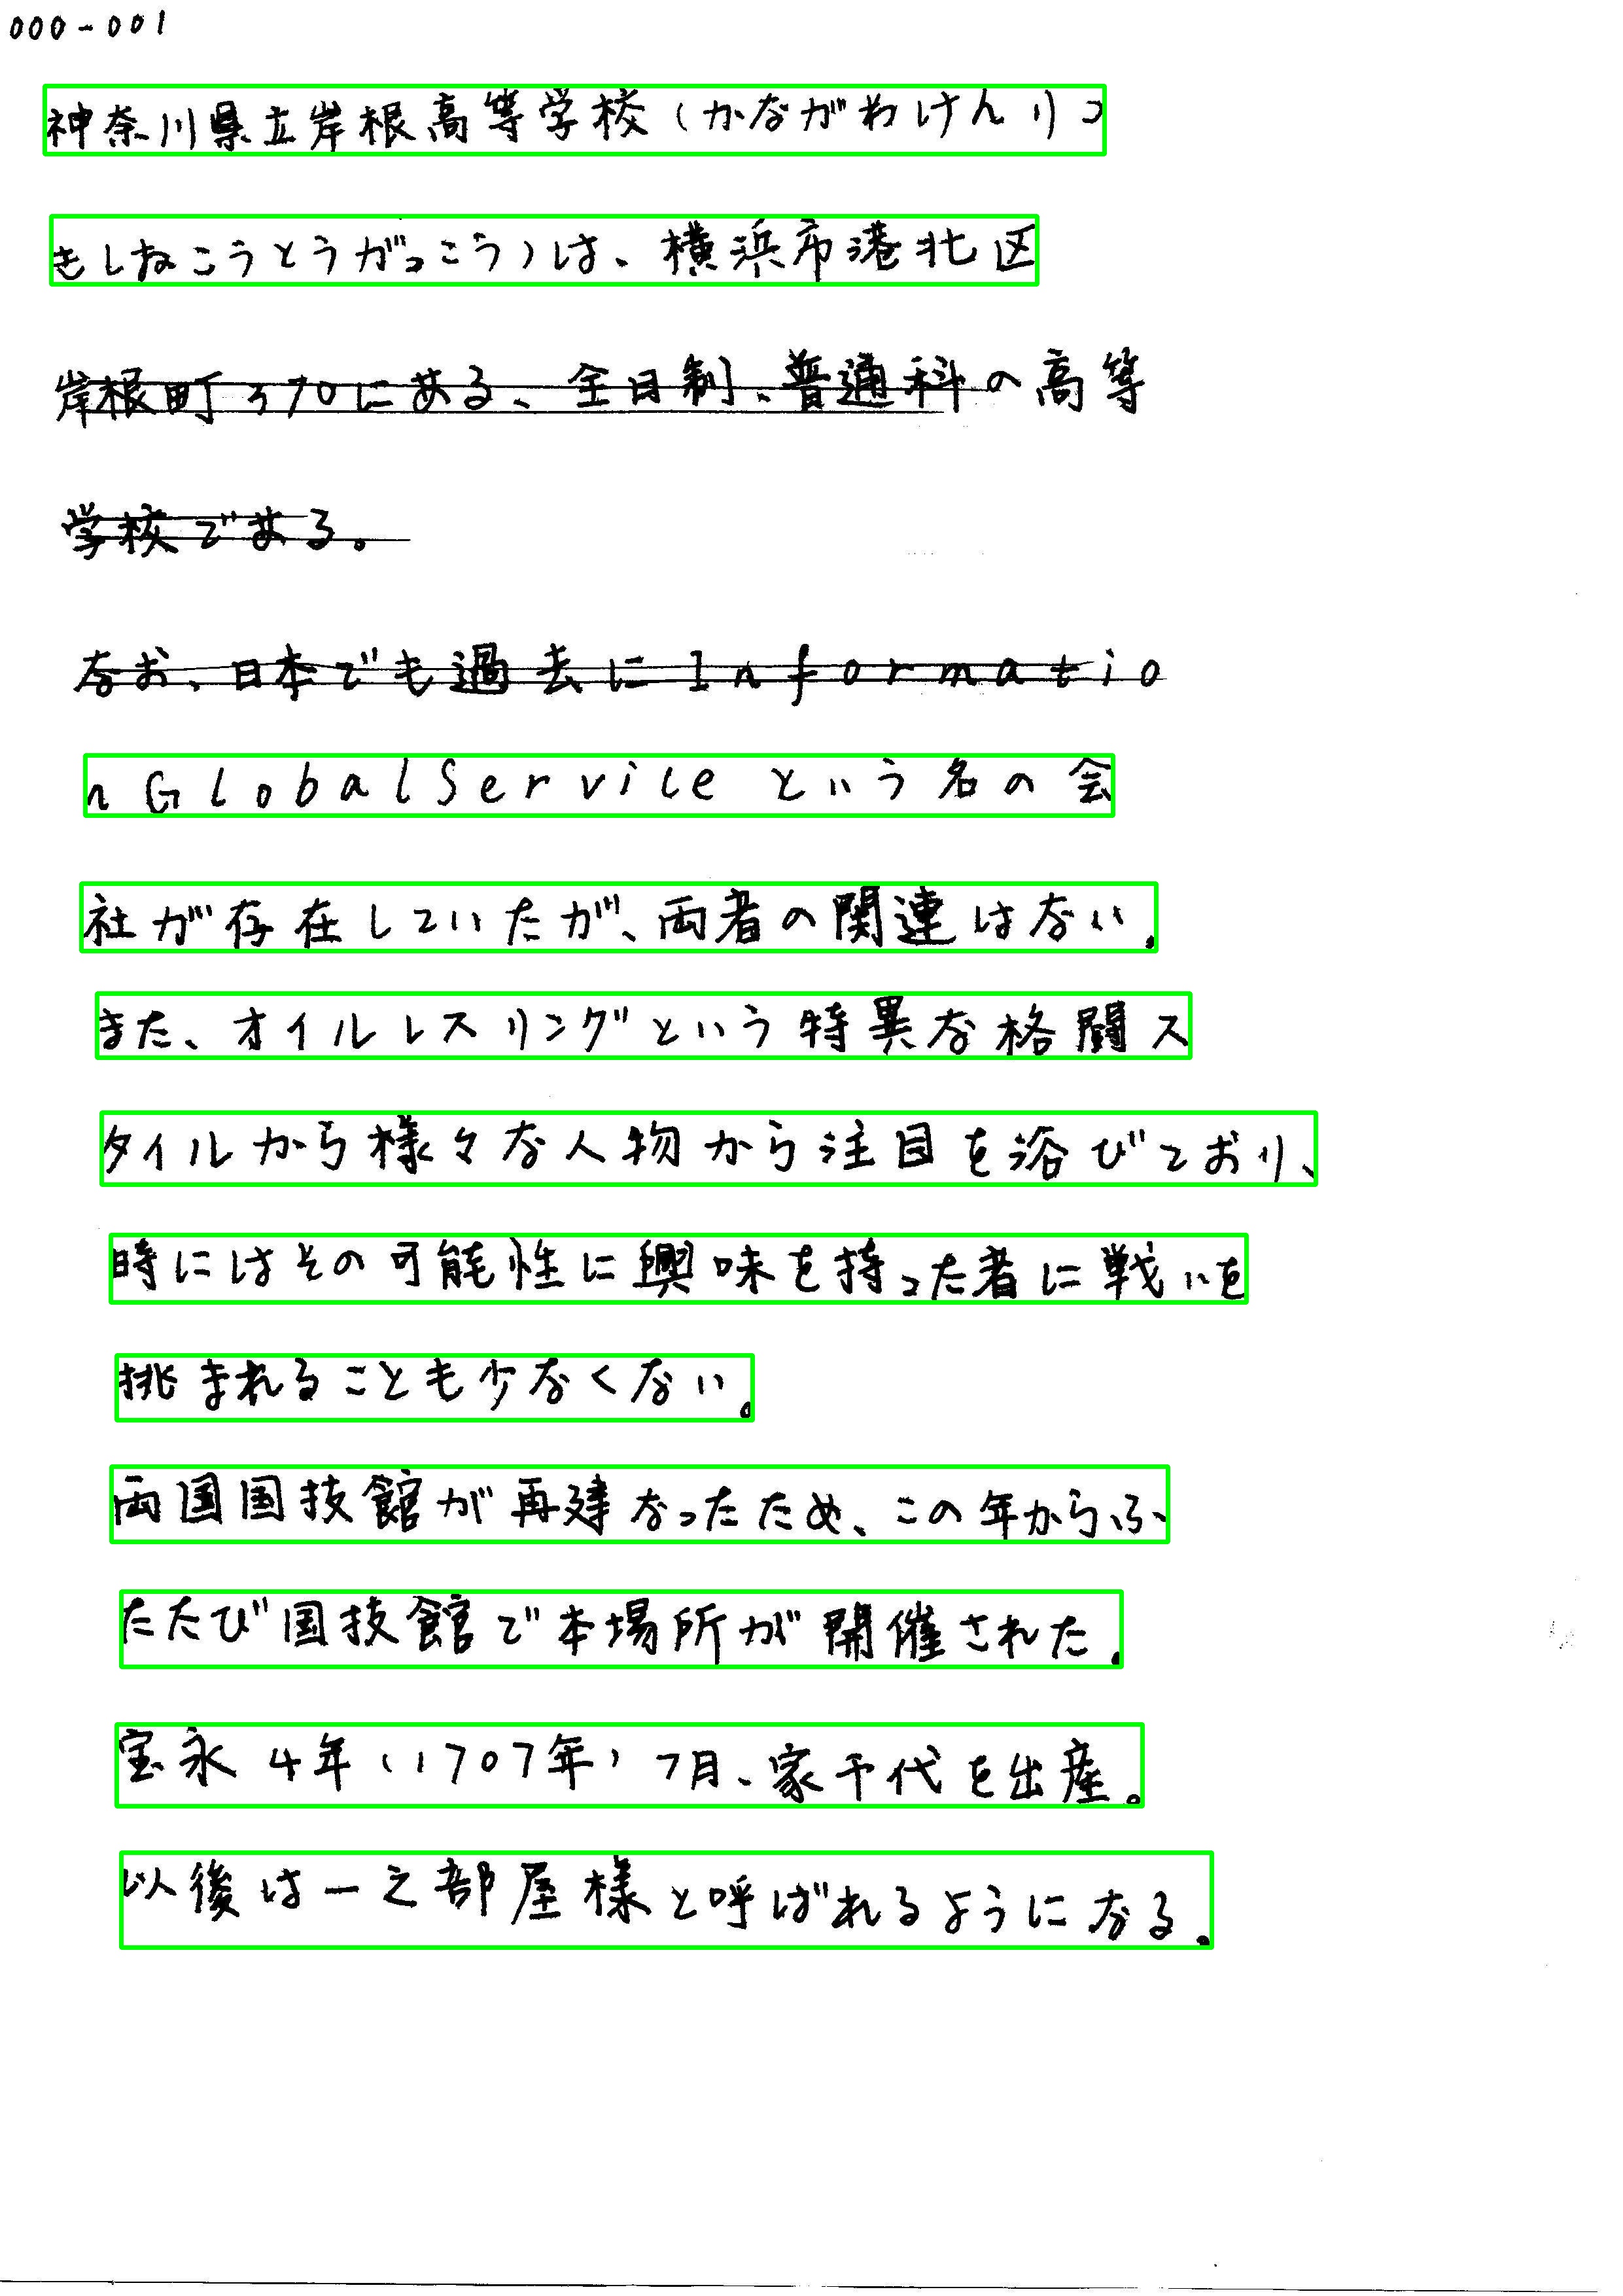 000-001
神奈川県立岸根高等学校(かながわけんりつ
きしねこうとうがっこう)は、横浜市港北区
岸根町370にある、全日制、普通科の高等
学校である。
なお、日本でも過去にInformatio
nGlobalServiceという名の会
社が存在していたが、両者の関連はない。
また、オイルレスリングという特異な格闘ス
タイルから様々な人物から注目を浴びており、
時にはその可能性に興味を持った者に戦いを
挑まれることも少なくない。
両国国技館が再建なったため、この年からふ
たたび国技館で本場所が開催された。
宝永4年(1707年)7月、家千代を出産。
以後は一之部屋様と呼ばれるようになる。